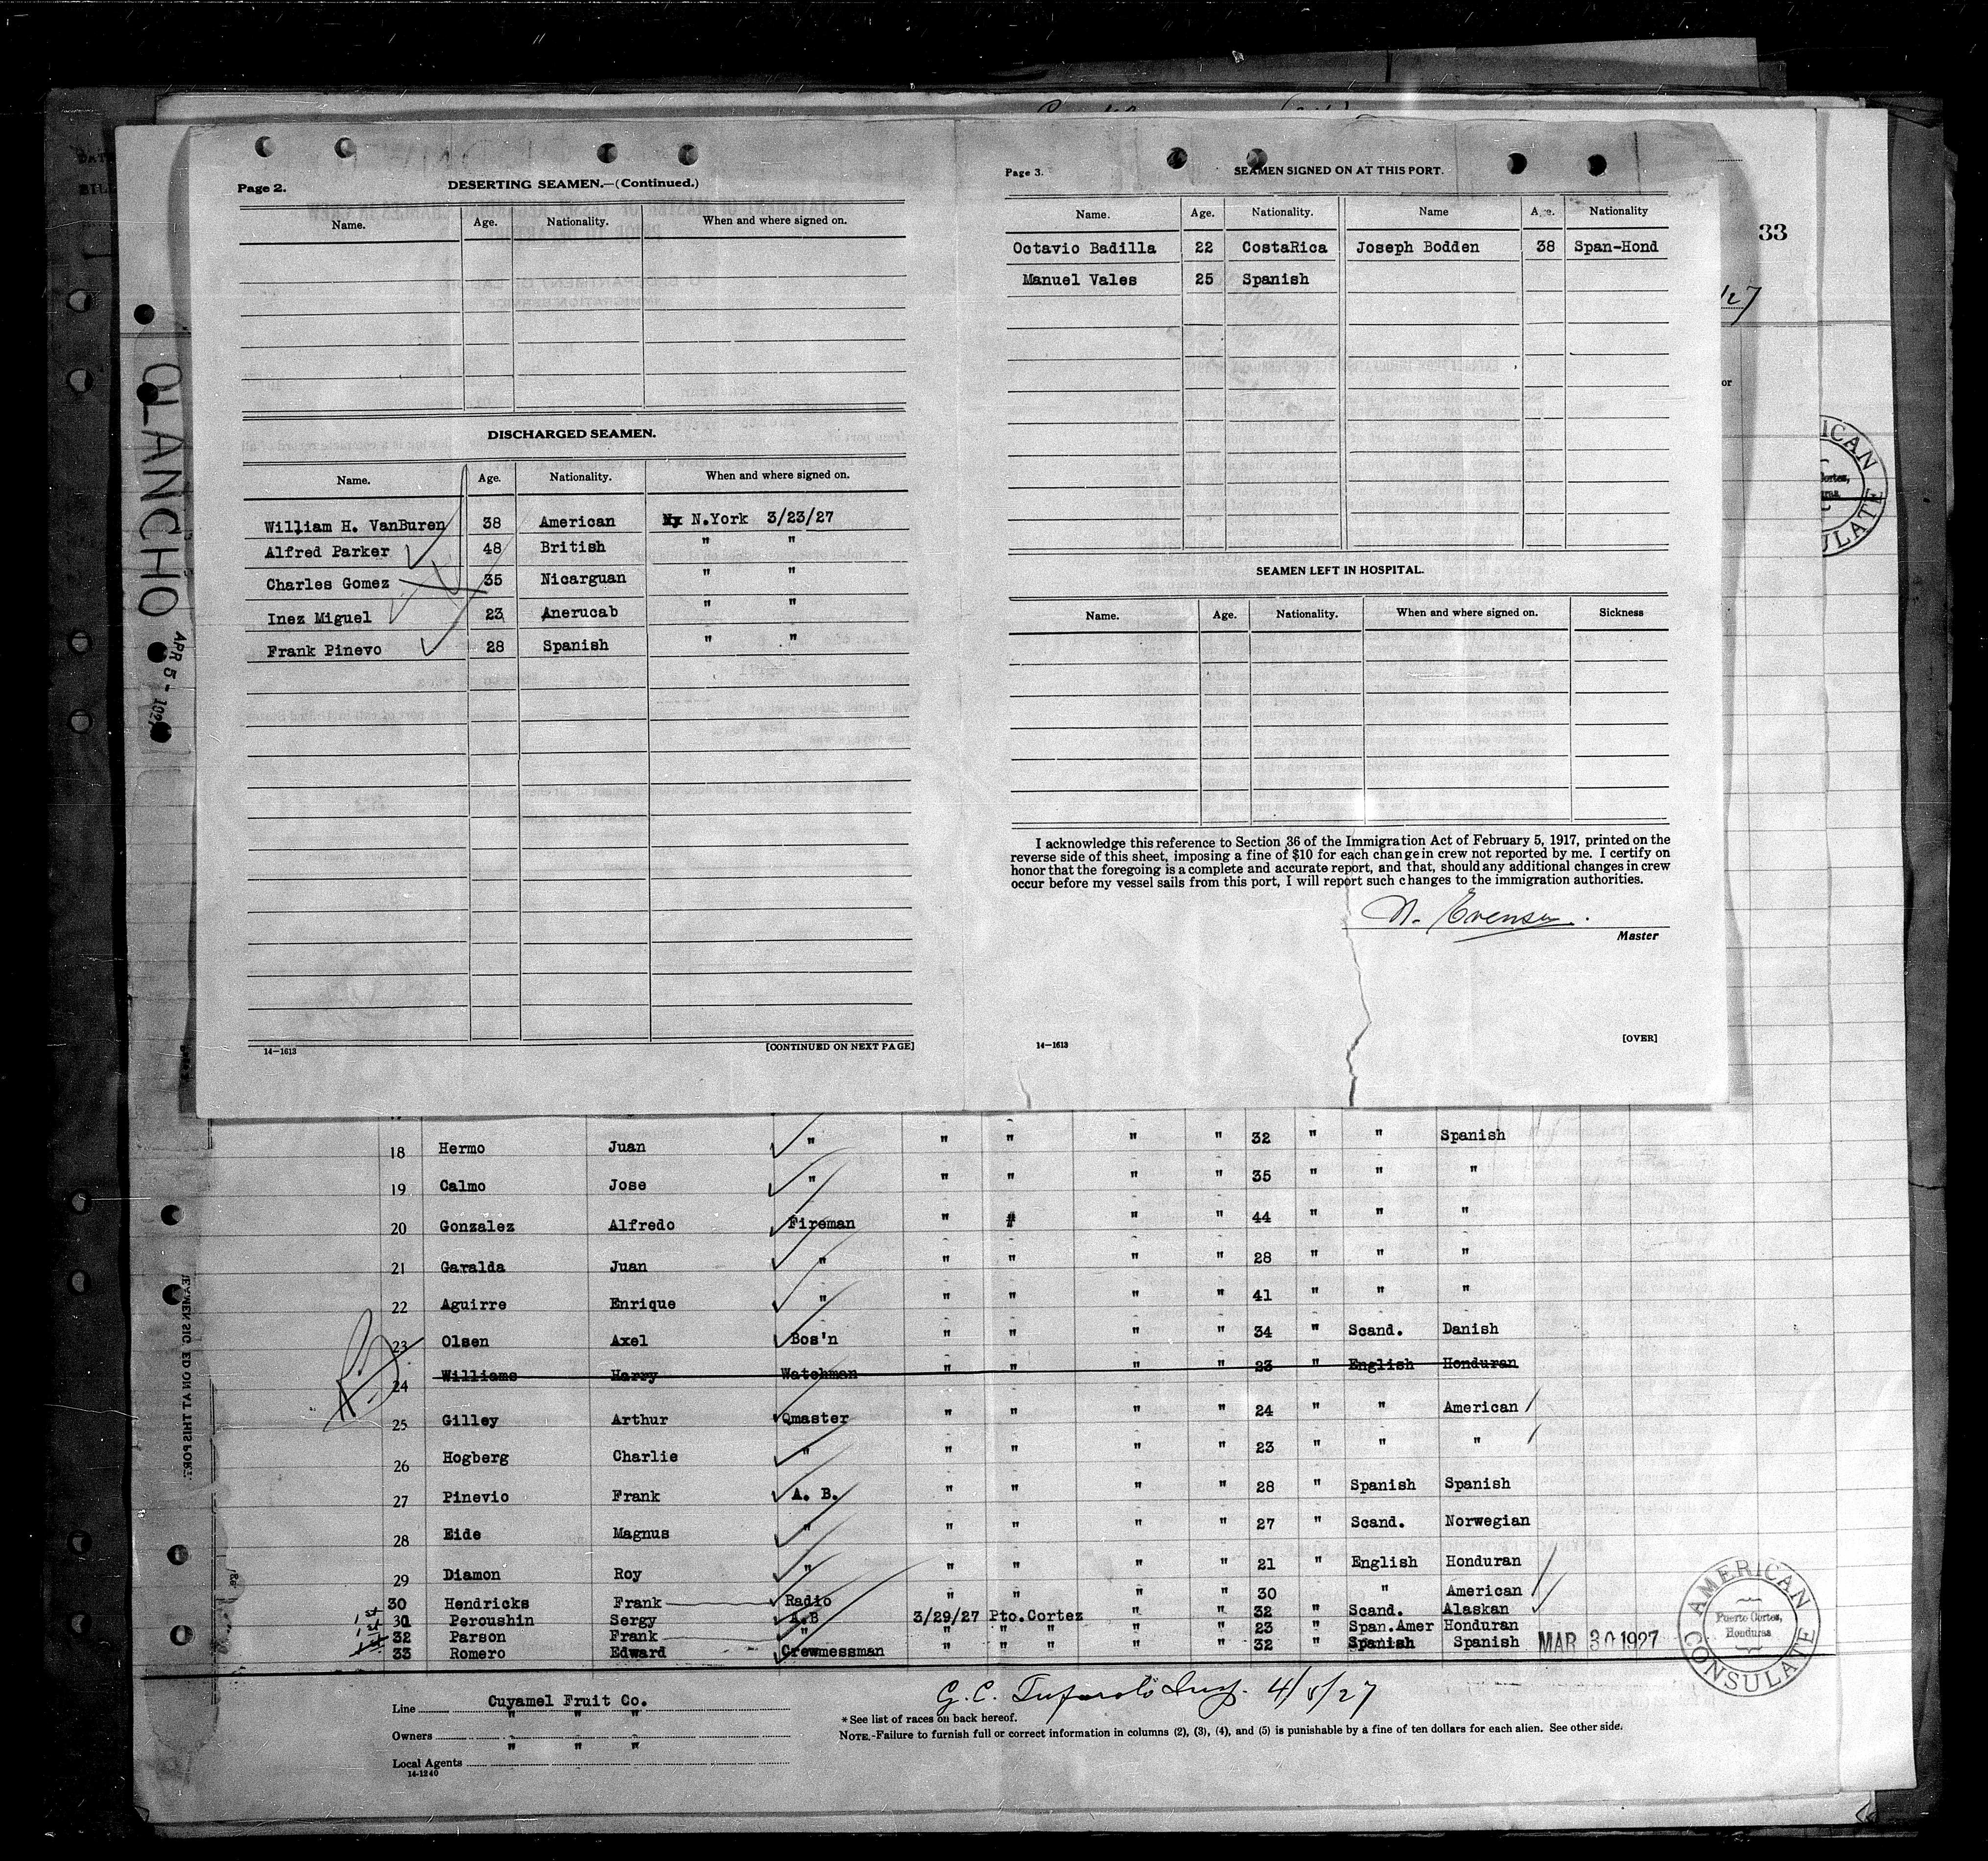 33
/27
or
OLANCHO
APR 5 - 1927
Page 2.
DESERTING SEAMEN.—(Continued.)
Name. Age. Nationality. When and where signed on.
DISCHARGED SEAMEN.
Name. Age. Nationality. When and where signed on.
William H. VanBuren 38 American Ny N.York 3/23/27
Alfred Parker 48 British " "
Charles Gomez 35 Nicarguan " "
Inez Miguel 23 Anerucab " "
Frank Pinevo 28 Spanish " "
14—1613
[CONTINUED ON NEXT PAGE]
Page 3.
SEAMEN SIGNED ON AT THIS PORT.
Name. Age. Nationality. Name Age. Nationality
Octavio Badilla 22 CostaRica Joseph Bodden 38 Span-Hond
Manuel Vales 25 Spanish
SEAMEN LEFT IN HOSPITAL.
Name. Age. Nationality. When and where signed on. Sickness
I acknowledge this reference to Section 36 of the Immigration Act of February 5, 1917, printed on the
reverse side of this sheet, imposing a fine of $10 for each change in crew not reported by me. I certify on
honor that the foregoing is a complete and accurate report, and that, should any additional changes in crew
occur before my vessel sails from this port, I will report such changes to the immigration authorities.
N. Evensen.
Master
14—1613
[OVER]
18 Hermo Juan " " " " " 32 " " Spanish
19 Calmo Jose " " " " " 35 " " "
20 Gonzalez Alfredo Fireman " " " " 44 " " "
21 Garalda Juan " " " " " 28 " " "
22 Aguirre Enrique " " " " " 41 " " "
23 Olsen Axel Bos'n " " " " 34 " Scand. Danish
24 Williams Harry Watchman " " " " 23 " English Honduran
25 Gilley Arthur Qmaster " " " " 24 " " American
26 Hogberg Charlie " " " " " 23 " " "
27 Pinevio Frank A. B. " " " " 28 " Spanish Spanish
28 Eide Magnus " " " " " 27 " Scand. Norwegian
29 Diamon Roy " " " " " 21 " English Honduran
30 Hendricks Frank Radio " " " " 30 " American
31 Peroushin Sergy A.B 3/29/27 Pto.Cortez " " 32 " Scand. Alaskan
32 Parson Frank " " " " " " 23 " Span.Amer Honduran
33 Romero Edward Crewmessman " " " " " 32 " Spanish Spanish
MAR 30 1927
AMERICAN CONSULATE
Puerto Cortes,
Honduras
Line Cuyamel Fruit Co.
Owners " " "
Local Agents " " "
14-1240
G. C. 4/5/27
* See list of races on back hereof.
NOTE.-Failure to furnish full or correct information in columns (2), (3), (4), and (5) is punishable by a fine of ten dollars for each alien. See other side.